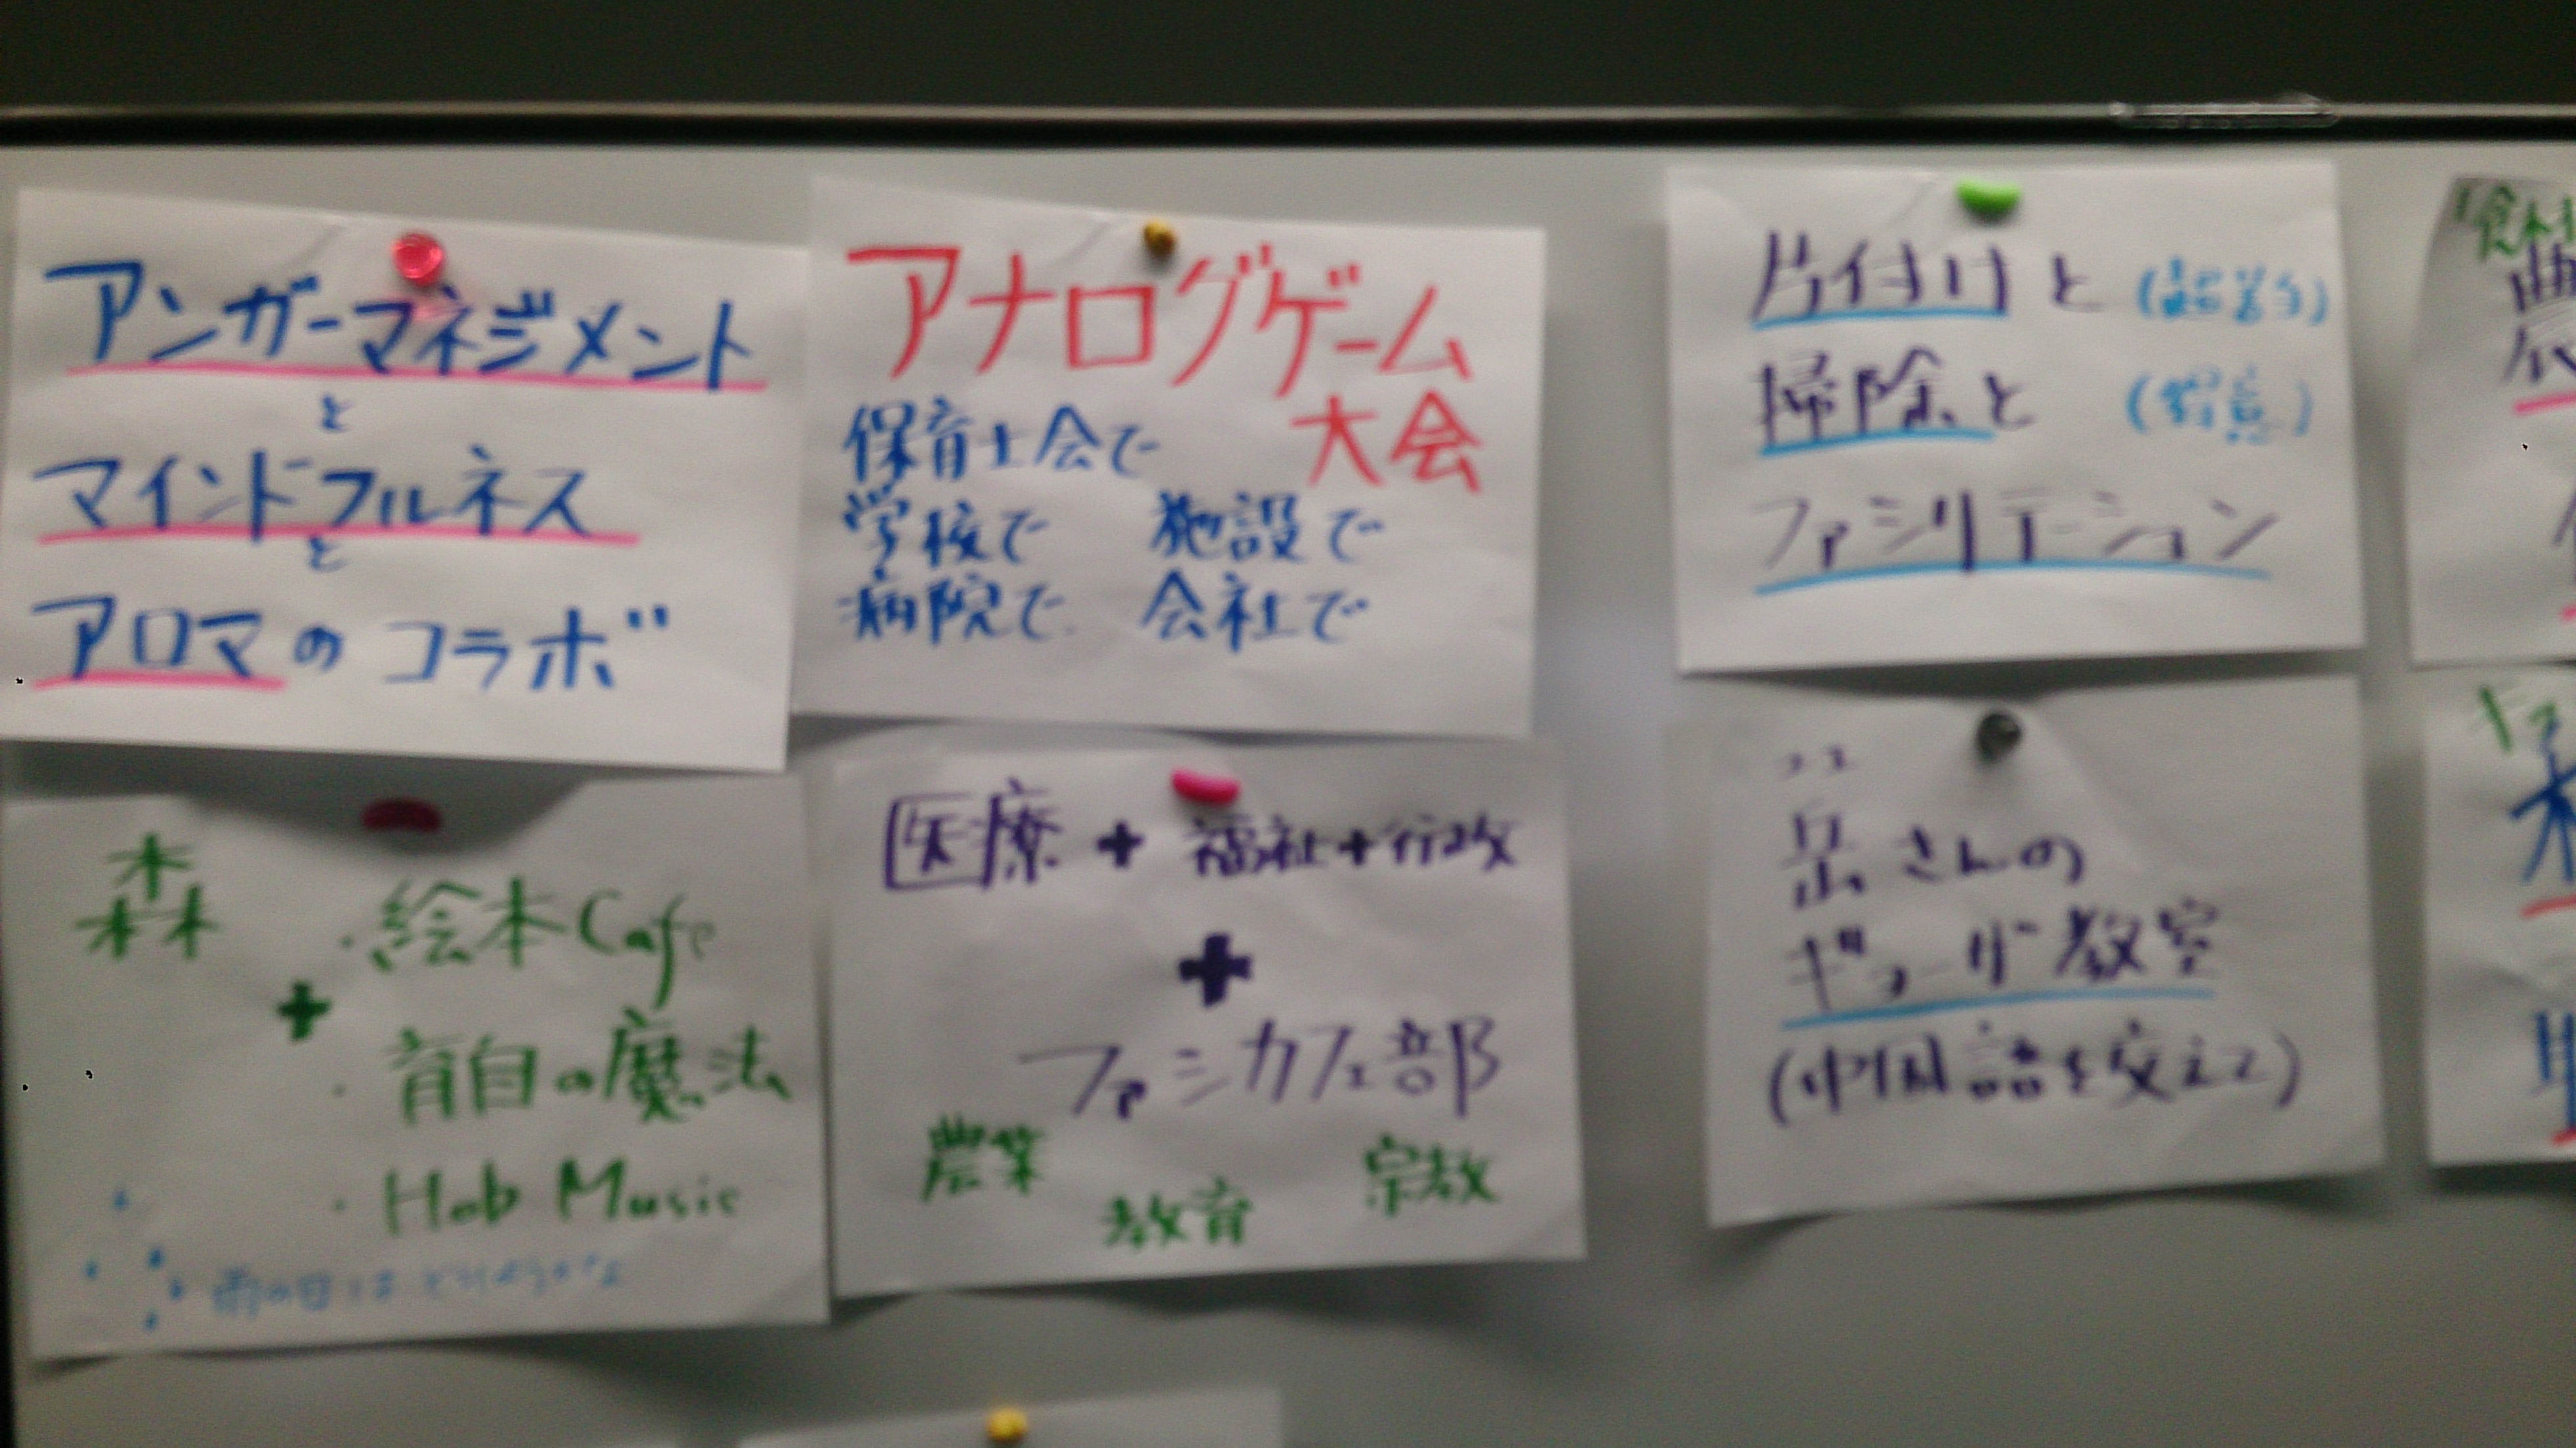 アンガーマネジメント
と
マインドフルネス
と
アロマのコラボ
アナログゲーム
大会
保育士会で
学校で 施設で
病院で 会社で
片付けと
掃除と
ファシリテーション
森
+
・絵本Cafe
・盲目の魔法
・Hob Music
医療+福祉+行政
+
ファシカフェ部
農業
教育
宗教
岳さんの
ギョーザ教室
(中国語を交えて)